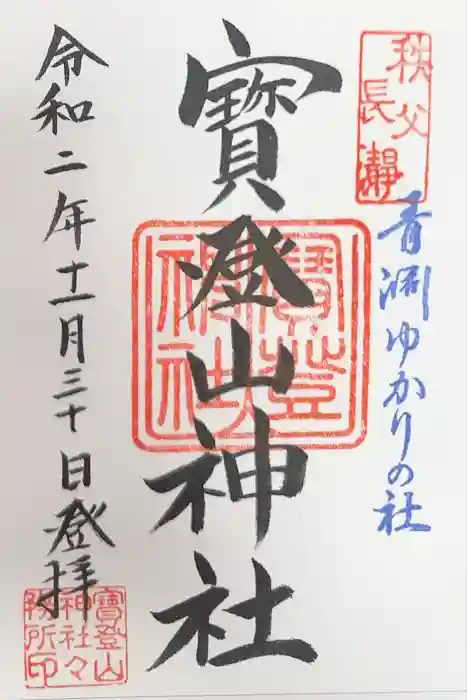 秩父
長瀞
青淵ゆかりの社
寳登山神社
寳登
神社
令和二年十一月三十日登拝
寳登山
神社々
務所印